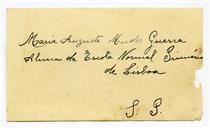 Maria Augusta Mendes Guerra
Aluna da Escola Normal Primária
de Lisboa
S. P.